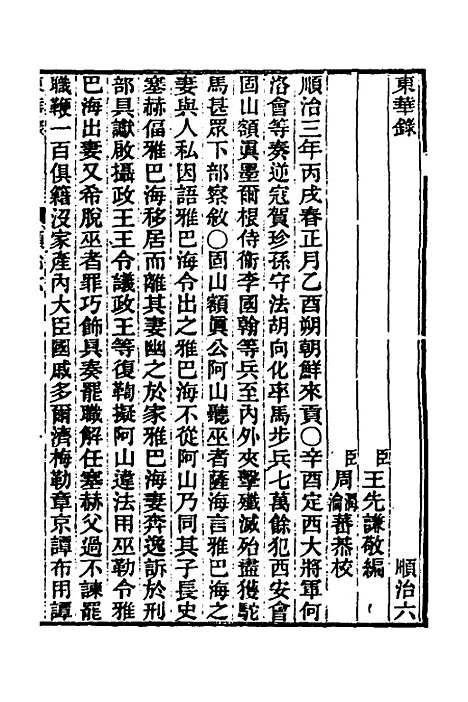 東華錄　順治六
臣王先謙敬編
臣周瀹蕃 潤蕃恭校
順治三年丙戌春正月乙酉朔朝鮮來貢○辛酉定西大將軍何
洛會等奏逆寇賀珍孫守法胡向化率馬步兵七萬餘犯西安會
固山額眞墨爾根侍衞李國翰等兵至內外夾擊殲滅殆盡獲駝
馬甚眾下部察敘○固山額眞公阿山聽巫者薩海言雅巴海之
妻與人私因語雅巴海令出之雅巴海不從阿山乃同其子長史
塞赫偪雅巴海移居而離其妻幽之於家雅巴海妻奔逸訴於刑
部具讞啟攝政王王令議政王等復鞫擬阿山違法用巫勒令雅
巴海出妻又希脫巫者罪巧飾具奏罷職解任塞赫父過不諫罷
職鞭一百俱籍沒家產內大臣國戚多爾濟梅勒章京譚布用譚